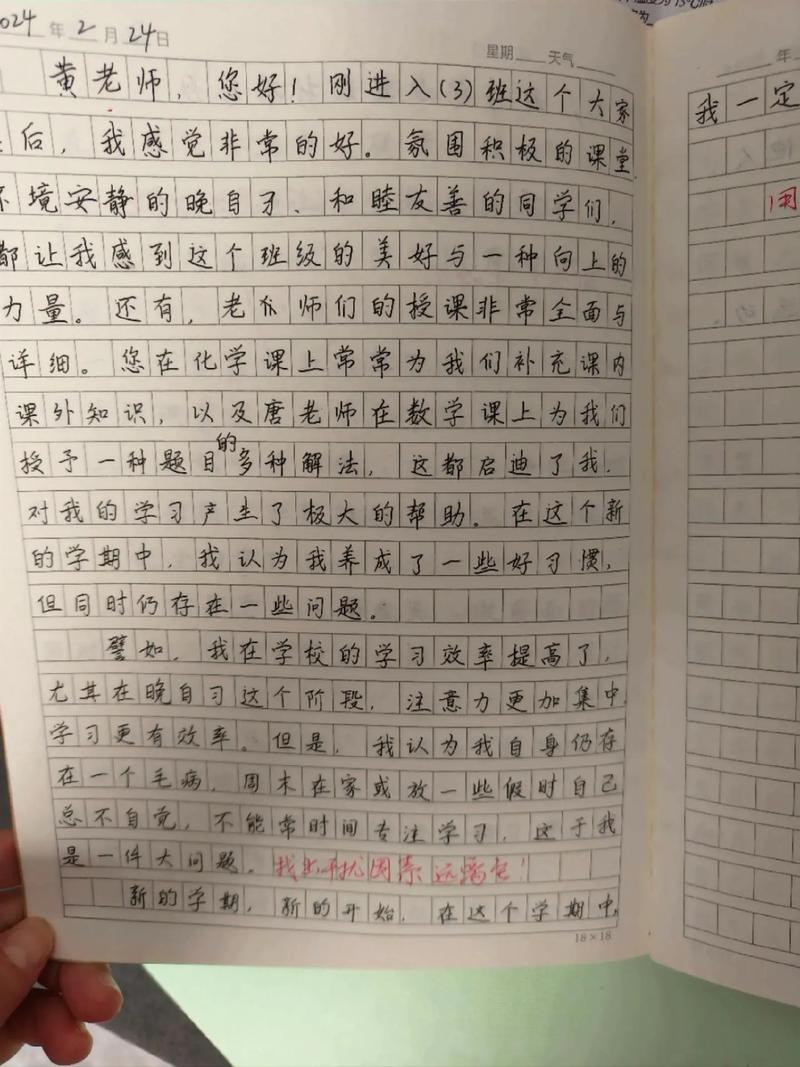 2024年2月24日 星期 天气
黄老师，您好！刚进入(3)班这个大家
后，我感觉非常的好。氛围积极的课堂
环境安静的晚自习、和睦友善的同学们，
都让我感到这个班级的美好与一种向上的
力量。还有，老师们的授课非常全面与
详细。您在化学课上常常为我们补充课内
课外知识，以及唐老师在数学课上为我们
授予一种题目的多种解法，这都启迪了我，
对我的学习产生了极大的帮助。在这个新
的学期中，我认为我养成了一些好习惯，
但同时仍存在一些问题。
譬如，我在学校的学习效率提高了，
尤其在晚自习这个阶段，注意力更加集中，
学习更有效率。但是，我认为我自身仍存
在一个毛病，周末在家或放一些假时自己
总不自觉，不能常时间专注学习，这于我
是一件大问题。找出干扰因素远离它！
新的学期，新的开始，在这个学期中，
18×18
年
我一定